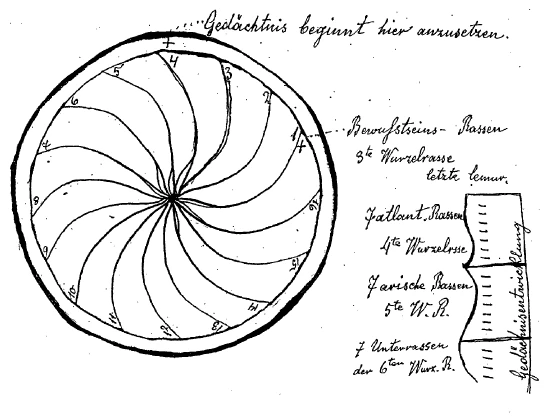 Gedächtnis beginnt hier anzusetzen.
Bewußtseins-Rassen
3te Wurzelrasse
letzte lemur.
7 atlant. Rassen
4te Wurzelrsse
7 arische Rassen
5te W. R.
7 Unterrassen
der 6ten Wurz. R.
Gedächtnisentwicklung
1
2
3
4
5
6
7
8
9
10
11
12
13
14
15
16